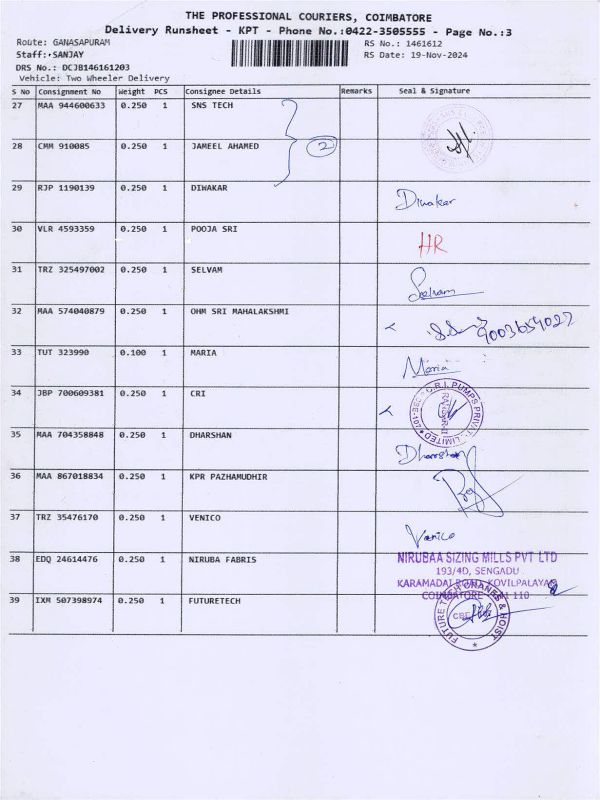 THE PROFESSIONAL COURIERS, COIMBATORE
Delivery Runsheet - KPT - Phone No.:0422-3505555 - Page No.:3
Route: GANASAPURAM
RS No.: 1461612
Staff:-SANJAY
RS Date: 19-Nov-2024
DRS No.: DCJB146161203
Vehicle: Two Wheeler Delivery
S No Consignment No Weight PCS Consignee Details Remarks Seal & Signature
27 MAA 944600633 0.250 1 SNS TECH
28 CMM 910085 0.250 1 JAMEEL AHAMED 2
29 RJP 1190139 0.250 1 DIWAKAR Diwakar
30 VLR 4593359 0.250 1 POOJA SRI HR
31 TRZ 325497002 0.250 1 SELVAM Selvam
32 MAA 574040879 0.250 1 OHM SRI MAHALAKSHMI 9003659027
33 TUT 323990 0.100 1 MARIA Maria
34 JBP 700609381 0.250 1 CRI C.R.I. PUMPS PRIVATE LIMITED
35 MAA 704358848 0.250 1 DHARSHAN Dharshan
36 MAA 867018834 0.250 1 KPR PAZHAMUDHIR
37 TRZ 35476170 0.250 1 VENICO Venico
38 EDQ 24614476 0.250 1 NIRUBA FABRIS NIRUBAA SIZING MILLS PVT LTD
193/4D, SENGADU
KARAMADAI ROAD, KOVILPALAYAM
COIMBATORE - 641 110
39 IXM 507398974 0.250 1 FUTURETECH FUTURE TECH CRANES & HOIST
CBE